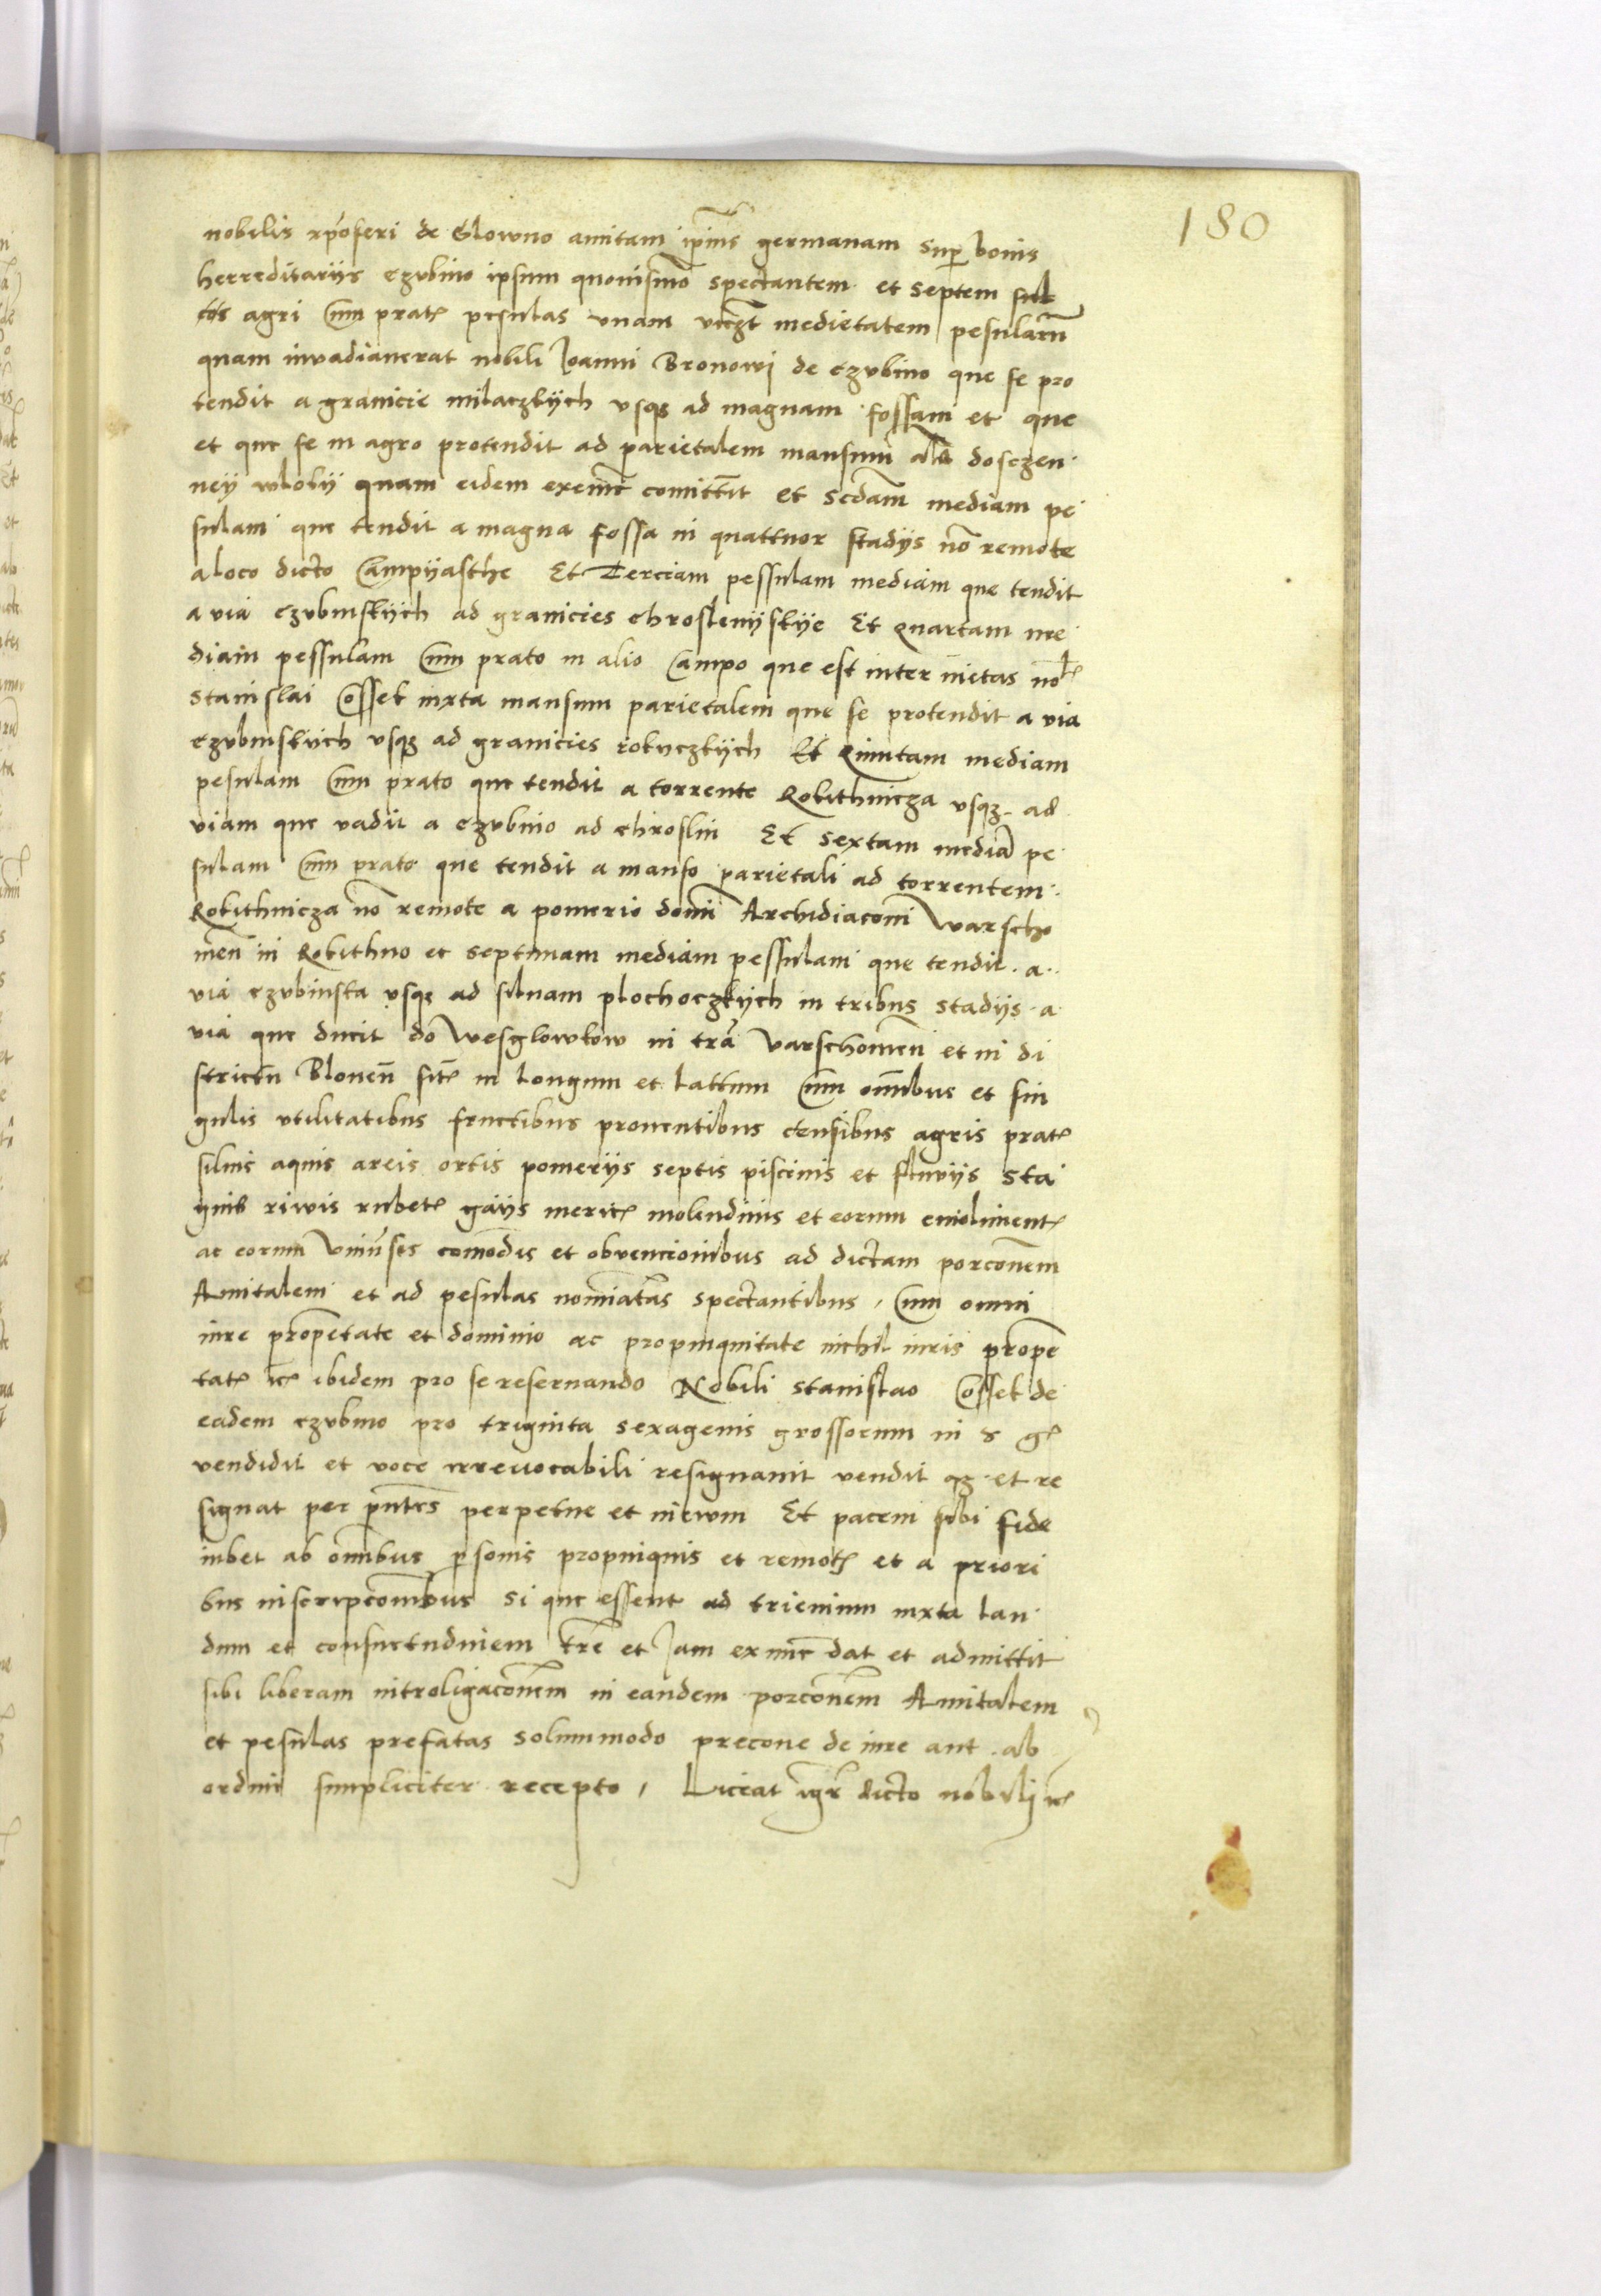 180
nobilis xpoferi de Glowno amitam ipius germanam Sup bonis
herreditariis Czubino ipsum quouismo spectantem et septem sul
cos agri Cum prat pesulas vnam viczt medietatem pesularu
quam invadiauerat nobili Joanni Bronowj de Czubino que se pro
tendit a granicie milaczkych vsqz ad magnam fossam et que
et que se in agro protendit ad parietalem mansum als dosczen
ney wloky quam eidem exeme comittit et Scdam mediam pe
sulam que tendit a magna fossa in quattuor stadijs no remote
a loco dicto Campyasthe Et Terciam pessulam mediam que tendit
a via czubinskych ad granicies chroslenyskye Et Quartam me
diam pessulam Cum prato in alio Campo que est inter metas nol
Stanislai Cosset iuxta mansum parietalem que se protendit a via
czubinskych vsqz ad granicies rokyczkych Et Quintam mediam
pesulam Cum prato que tendit a torrente Rokithnicza vsqz ad
viam que vadit a czubino ad chroslin Et Sextam media pe
sulam Cum prato que tendit a manso parietali ad torrentem
Rokithnicza no remote a pomerio domi Archidiaconi Warscho
uien in Rokithno et septimam mediam pessulam que tendit a
via czubinska vsqz ad siluam plochoczkych in tribus stadijs a
via que ducit do Wesglowkow in tra Varschouien et in di
strictu Blonen sit in longum et lattum Cum omibus et sin
gulis vtilitatibus fructibus prouentibus censibus agris prat
siluis aquis areis ortis pomerijs septis piscinis et fluvijs Sta
gnis riwis rubet gaijs meric molendinis et eorum emoliment
ac eorum Vniuses comodis et obvencionibus ad dictam porconem
Amitalem et ad pesulas nominatas spectantibus, Cum omni
iure propetate et dominio ac propinquitate nichil iuris prope
tat ibidem pro se reseruando Nobili Stanislao Cosset de
eadem czubino pro triginta sexagenis grossorum in g
vendidit et voce irreuocabili resignauit vendit qz et re
signat per pntes perpetue et in ewm Et pacem sibi fide
iubet ab omibus psonis propinquis et remot et a priori
bus inscripcombus si que essent ad trienium iuxta lau
dum et consuetudinem tre et Jam ex nunc dat et admittit
sibi liberam introligaconem in eandem porconem Amitalem
et pesulas prefatas solummodo precone de iure aut ab
ordini simpliciter recepto, Liceat igr dicto nobili